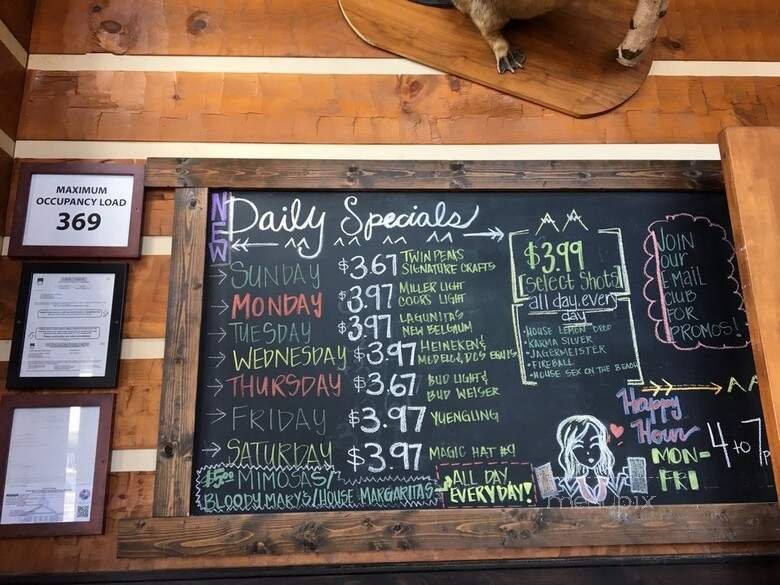 MAXIMUM
OCCUPANCY LOAD
369
NEW
Daily Specials
SUNDAY $3.67 TWIN PEAKS
SIGNATURE CRAFTS
MONDAY $3.97 MILLER LIGHT
COORS LIGHT
TUESDAY $3.97 LAGUNITAS
NEW BELGIUM
WEDNESDAY $3.97 HEINEKEN &
MODELO, DOS EQUIS
THURSDAY $3.67 BUD LIGHT &
BUD WEISER
FRIDAY $3.97 YUENGLING
SATURDAY $3.97 MAGIC HAT #9
$5.00 MIMOSAS/
BLOODY MARY'S/HOUSE MARGARITAS
ALL DAY
EVERYDAY!
$3.99
Select Shots
all day, every
day
•HOUSE LEMON DROP
•KARMA SILVER
•JAGERMEISTER
•FIREBALL
•HOUSE SEX ON THE BEACH
JOIN
our
EMail
CLUB
FOR
PROMOS!
Happy
Hour
MON-
FRI
4 to 7
menupix